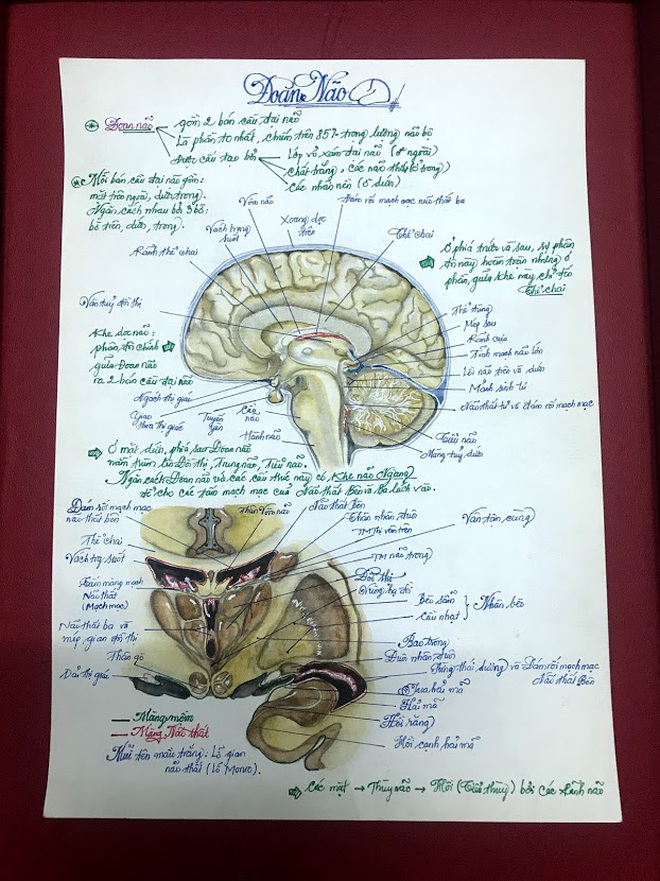 Đoan Não
Đoan não
gồm 2 bán cầu đại não
Là phần to nhất, chiếm trên 85% trong lượng não bộ
Được cấu tạo bởi
Lớp vỏ xám đại não (ở ngoài)
chất trắng, các não thất (ở trong)
các nhân nền (ở dưới)
Mỗi bán cầu đại não gồm:
mặt trên ngoài, dưới, trong.
Ngăn cách nhau bởi 3 bờ:
bờ trên, dưới, trong.
Vòm não
Đám rối mạch mạc não thất ba
Vách trong suốt
Xoang dọc trên
Thể chai
Rãnh thể chai
Ở phía trước và sau, sự phân
tách này hoàn toàn nhưng ở
phần giữa khe này, chỉ tới
Thể chai
Vân tuỷ đồi thị
Thể tùng
Mép sau
Rãnh cựa
Tĩnh mạch não lớn
Lồi não trên và dưới
Mảnh sinh tư
Não thất tư và đám rối mạch mạc
Khe dọc não:
phân đôi chính
giữa Đoan não
ra 2 bán cầu đại não
Ngách thị giác
Giao thoa thị giác
Tuyến yên
Cầu não
Hành não
Tiểu não
Màng tuỷ dưới
Ở mặt dưới, phía sau Đoan não
nằm trùm lên Đồi thị, Trung não, Tiểu não.
Ngăn cách Đoan não và các cấu trúc này có Khe não Ngang
để cho các tấm mạch mạc của Não thất Bên và Ba lách vào.
Đám rối mạch mạc
não thất bên
Thân Vòm não
Não thất Bên
Thân nhân đuôi
TM Thị vân trên
Vân tận cùng
Thể chai
Vách trg suốt
TM não trong
Tấm màng mạch
Não thất
(Mạch mạc)
Đồi thị
Vùng hạ đồi
Bèo sẫm
Cầu nhạt
Nhân bèo
Não thất ba và
mép gian đồi thị
Bao trong
Đuôi nhân đuôi
Thân gò
Dải thị giác
Sừng thái dương và Đám rối mạch mạc
Não thất Bên
Tua hải mã
Hải mã
Hồi răng
Hồi cạnh hải mã
Màng mềm
Màng Não thất
Mũi tên màu trắng: Lỗ gian
não thất (Lỗ Monro).
Các mặt → Thuỳ não → Hồi (Tiểu thuỳ) bởi các rãnh não